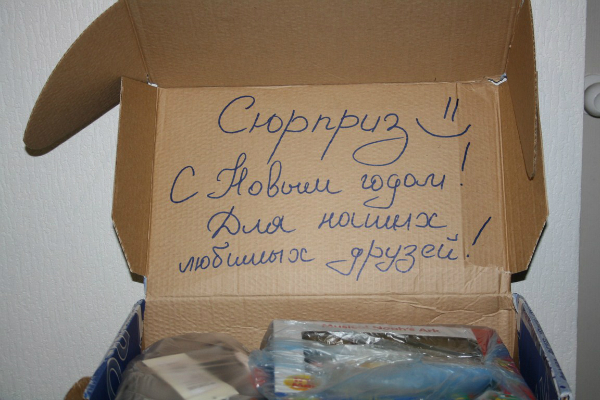 Сюрприз
С Новым годом!
Для наших
любимых друзей!